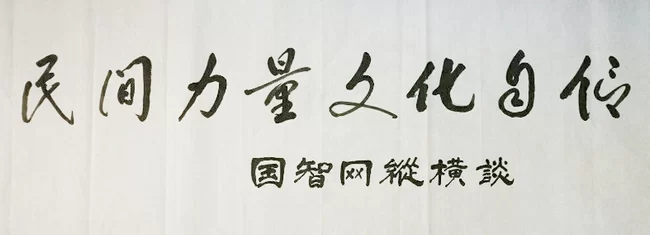 民间力量文化自信
国智网縱橫談